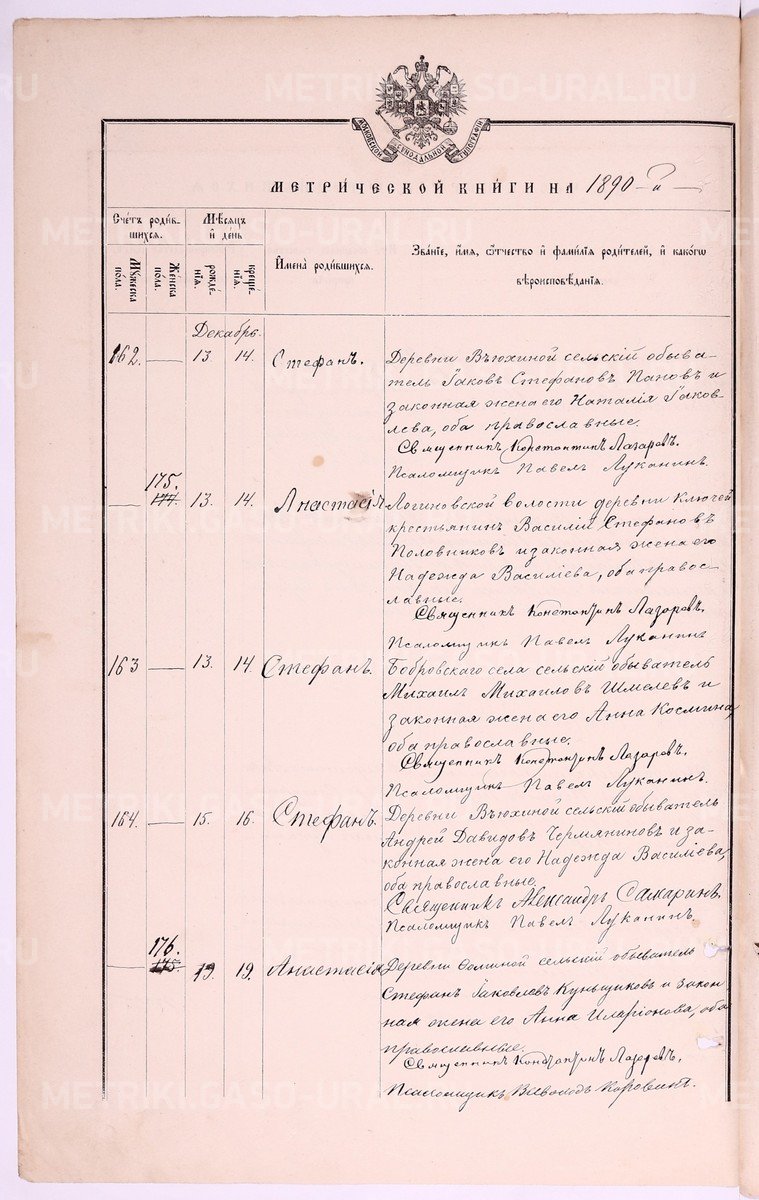 МОСКОВСКОЙ СѴНОДАЛЬНОЙ ТИПОГРАФІИ
МЕТРИ́ЧЕСКОЙ КНИ́ГИ НА 1890 г.
Сче́тъ роди́в-
шихся.
Мѣсяцъ
и҆ де́нь
И҆мена̀ роди́вшихся.
Зва́нїе, и҆́мя, ѻ҆́тчество и҆ фами́лїа роди́телей, и҆ како́гѡ
вѣроисповѣ́данїѧ.
Мꙋ́жеска
по́ла.
Же́нска
по́ла.
рожде́-
нїѧ.
креще́-
нїѧ.
Декабрь.
162. — 13. 14. Стефанъ. Деревни Вьюхиной сельскій обыва-
тель Іаковъ Стефановъ Пановъ и
законная жена его Наталія Іаков-
лева, оба православные.
Священникъ Константинъ Лазаревъ.
Псаломщикъ Павелъ Луканинъ.
175.
— 174. 13. 14. Анастасія Логиновской волости деревни Ключей
крестьянинъ Василій Стефановъ
Половниковъ и законная жена его
Надежда Василіева, оба право-
славные.
Священникъ Константинъ Лазаревъ.
Псаломщикъ Павелъ Луканинъ
163 — 13. 14. Стефанъ. Бобровскаго села сельскій обыватель
Михаилъ Михаиловъ Шмелевъ и
законная жена его Анна Космина,
оба православные.
Священникъ Константинъ Лазаревъ.
Псаломщикъ Павелъ Луканинъ.
164. — 15. 16. Стефанъ. Деревни Вьюхиной сельскій обыватель
Андрей Давидовъ Чермяниновъ и за-
конная жена его Надежда Василіева,
оба православные.
Священникъ Александръ Самаринъ.
Псаломщикъ Павелъ Луканинъ.
176.
— 175. 19. 19. Анастасія Деревни Фоминой сельскій обыватель
Стефанъ Іаковлевъ Куньщиковъ и закон
ная жена его Анна Иларіонова, оба
православные.
Священникъ Константинъ Лазаревъ.
Псаломщикъ Всеволодъ Коровинъ.